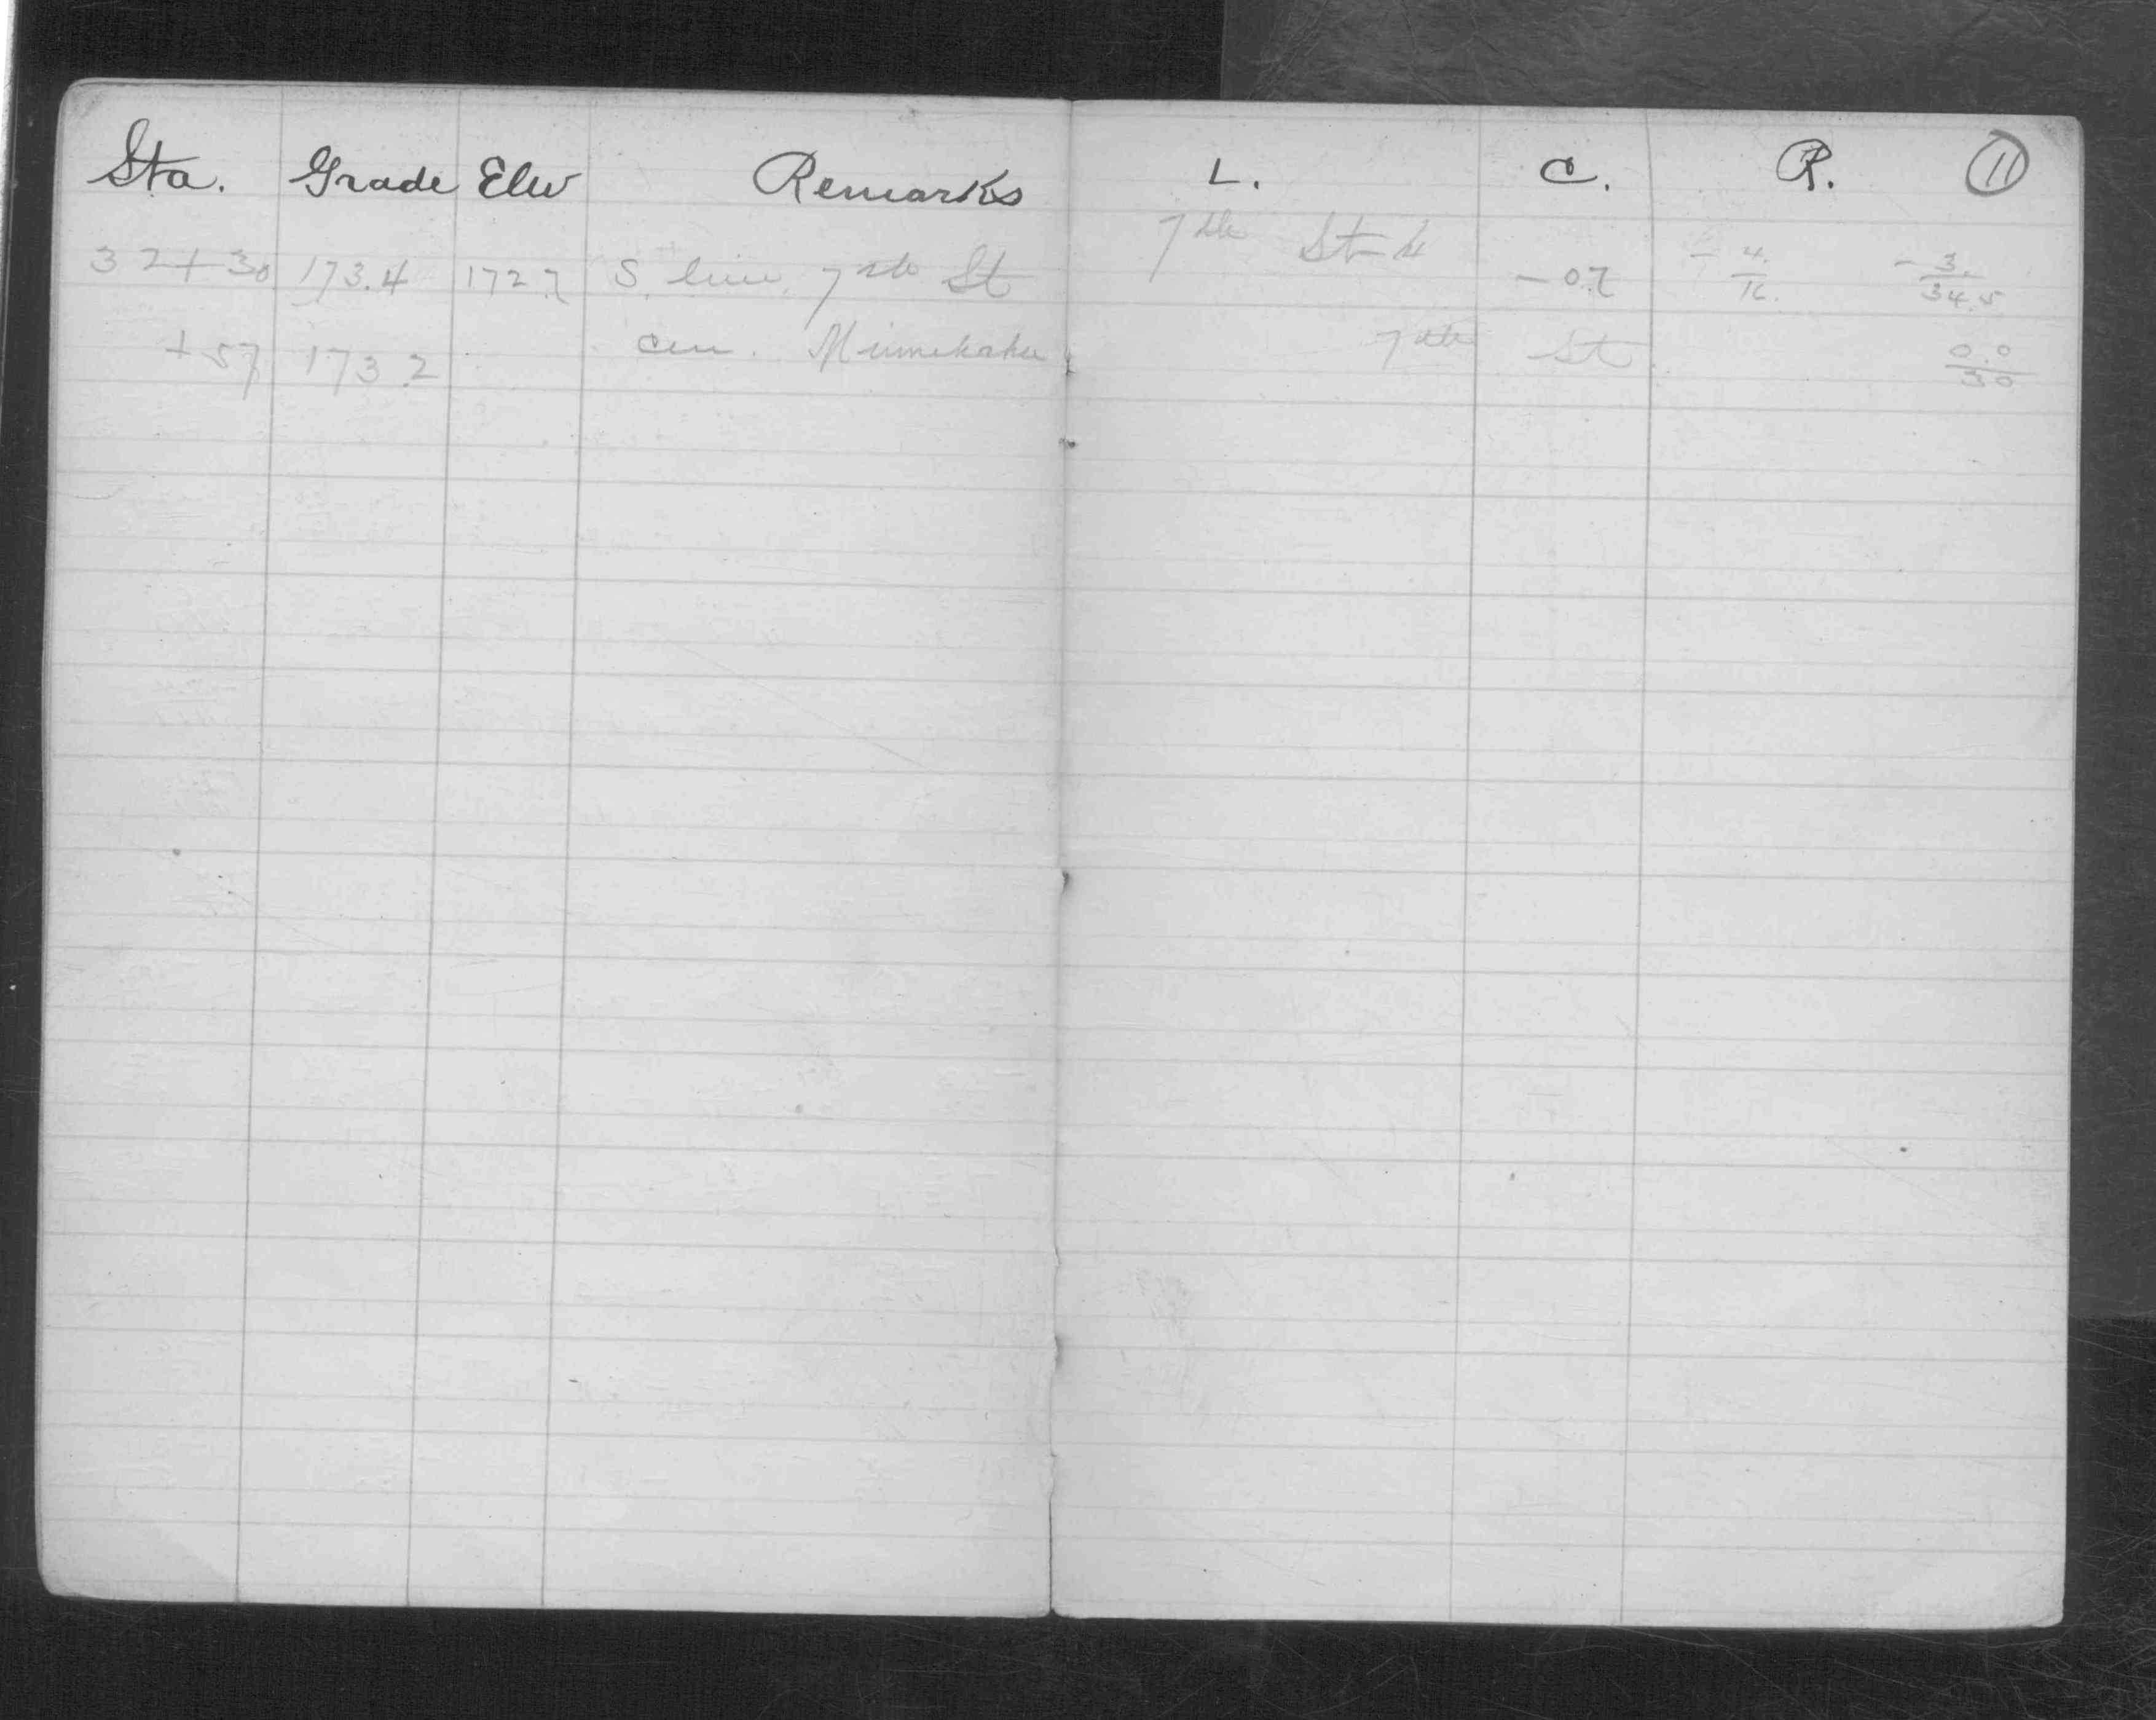 Sta. Grade Elev Remarks L. C. R. 11
7th St
32+30 173.4 172.7 S. line 7th St -0.7 -4./16. -3./34.5
+57 173.2 cen. Minnehaha 7th St. 0.0/30